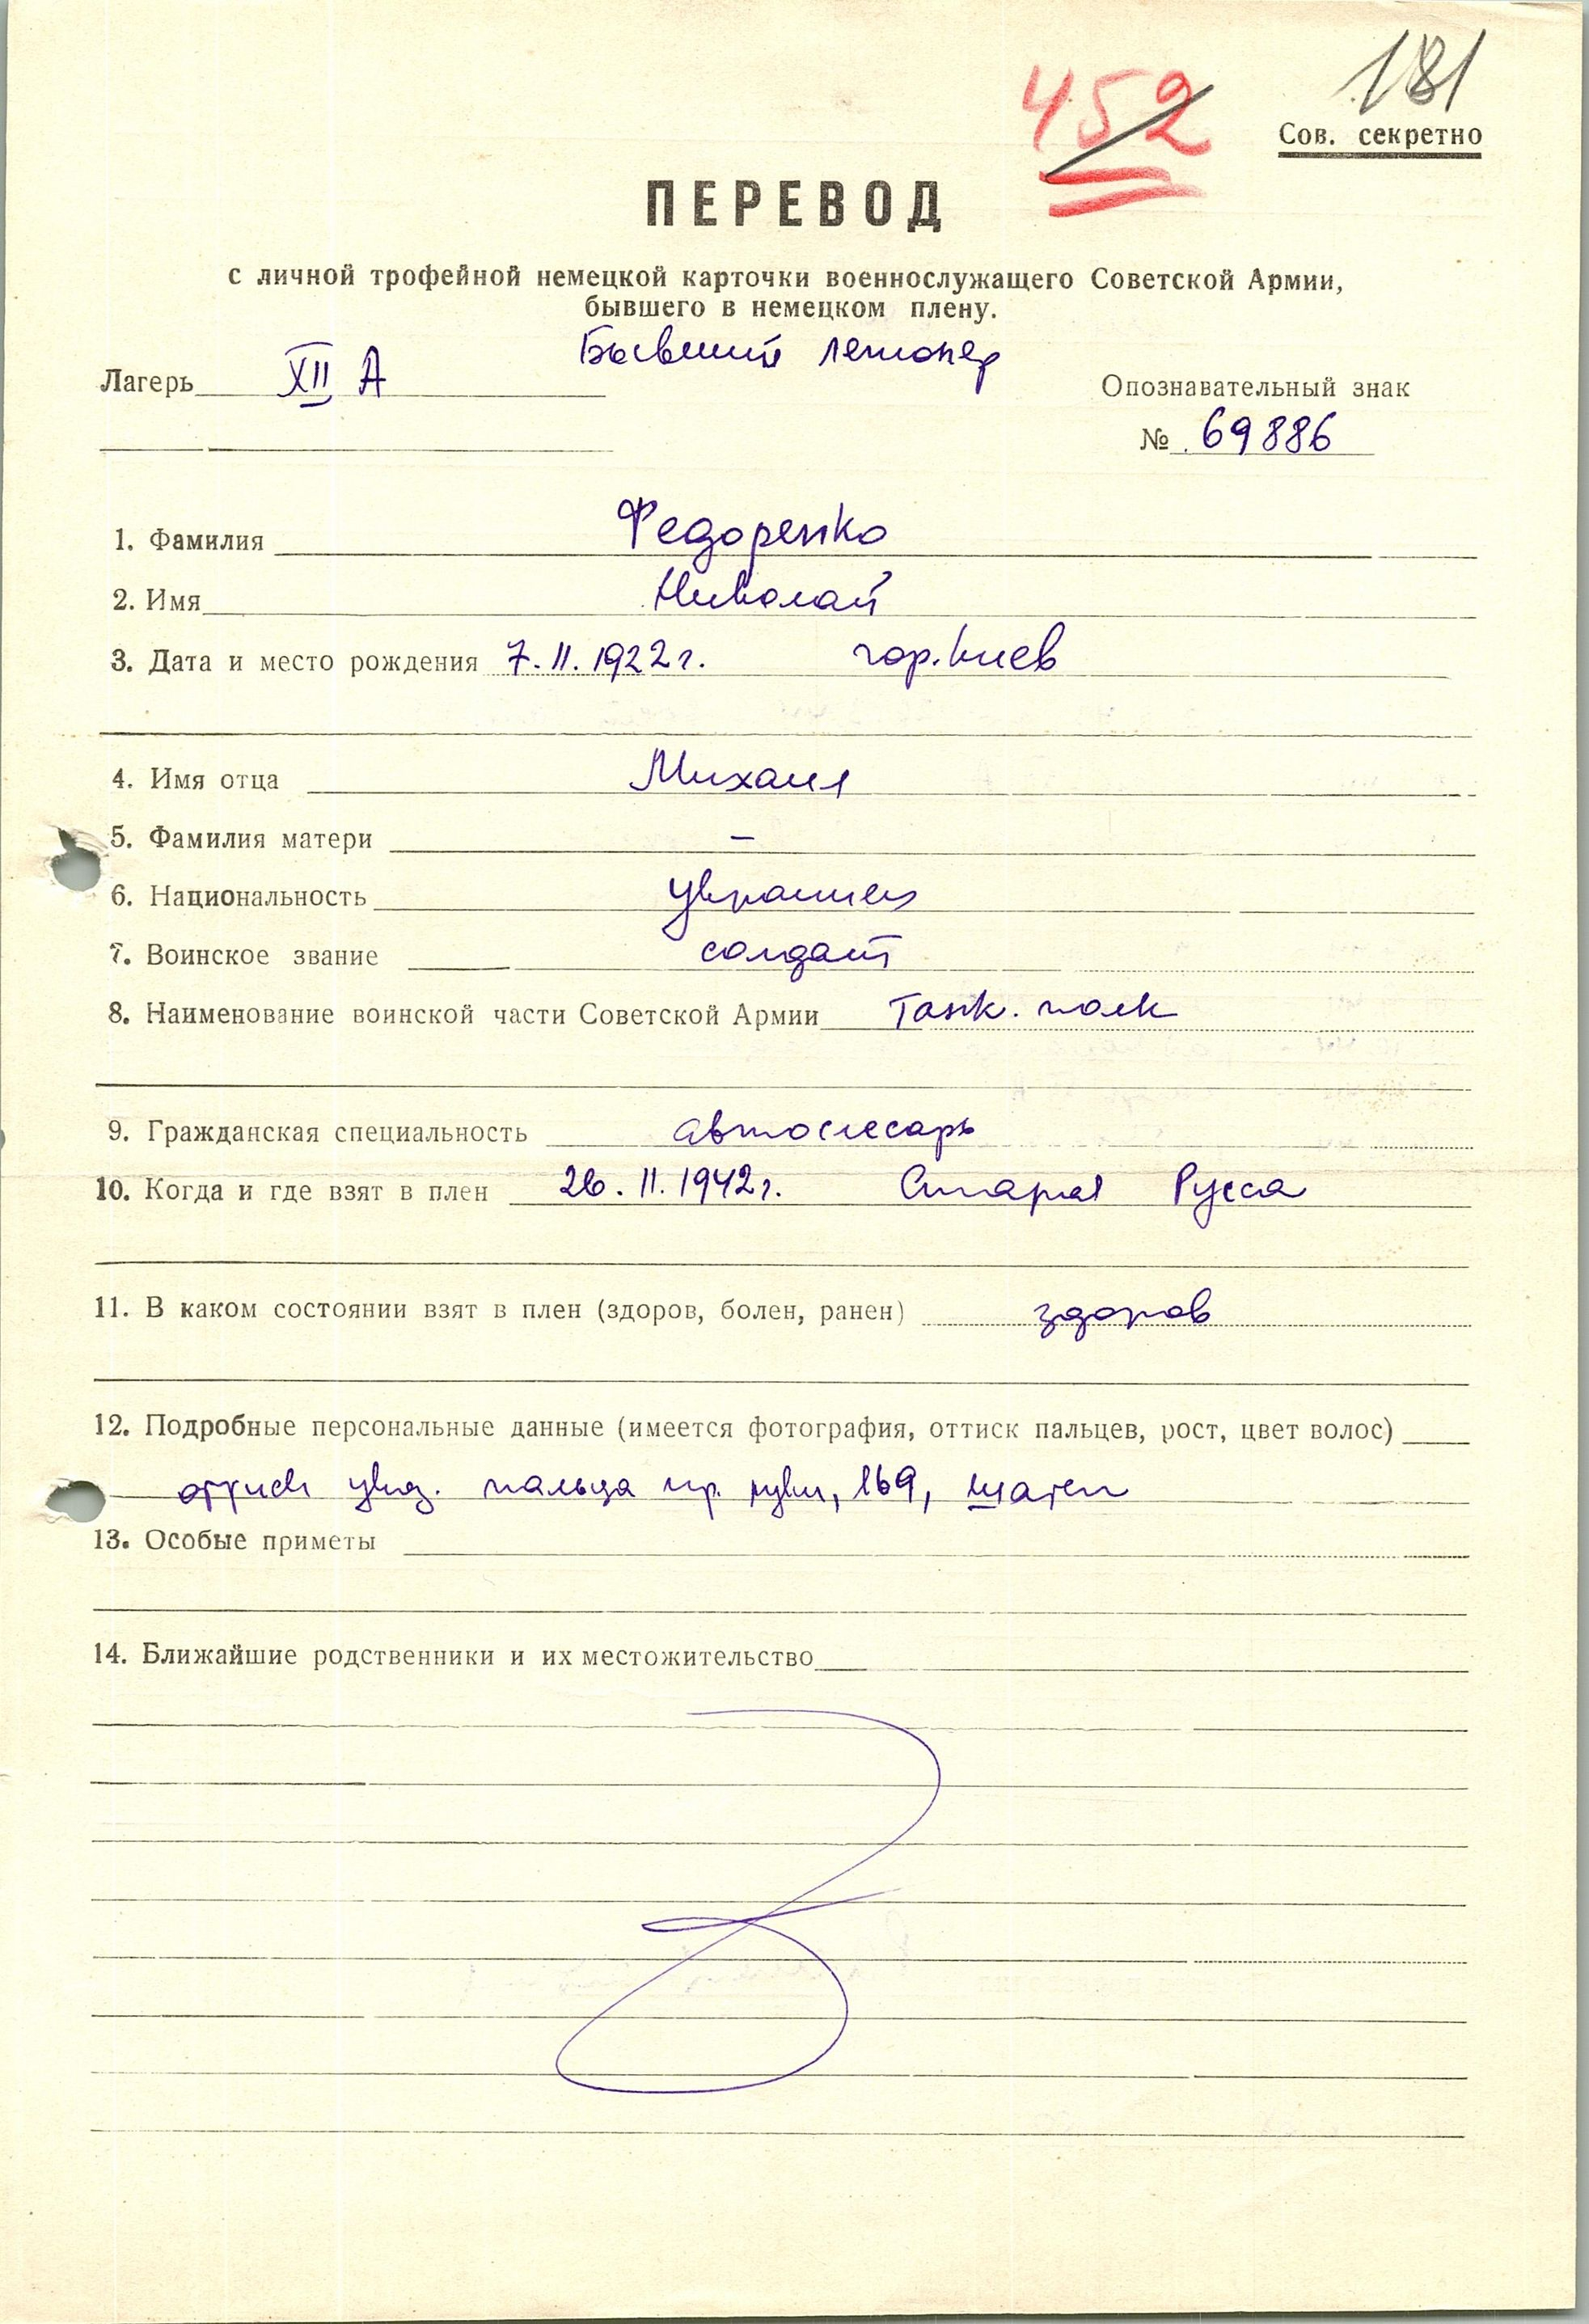 452
181
Сов. секретно
ПЕРЕВОД
с личной трофейной немецкой карточки военнослужащего Советской Армии,
бывшего в немецком плену.
Бывший легионер
Лагерь XII А
Опознавательный знак
№ 69886
1. Фамилия Федоренко
2. Имя Николай
3. Дата и место рождения 7.II.1922г. гор. Киев
4. Имя отца Михаил
5. Фамилия матери –
6. Национальность украинец
7. Воинское звание солдат
8. Наименование воинской части Советской Армии Танк. полк
9. Гражданская специальность автослесарь
10. Когда и где взят в плен 26.II.1942г. Старая Русса
11. В каком состоянии взят в плен (здоров, болен, ранен) здоров
12. Подробные персональные данные (имеется фотография, оттиск пальцев, рост, цвет волос)
оттиск указ. пальца пр. руки, 169, шатен
13. Особые приметы
14. Ближайшие родственники и их местожительство